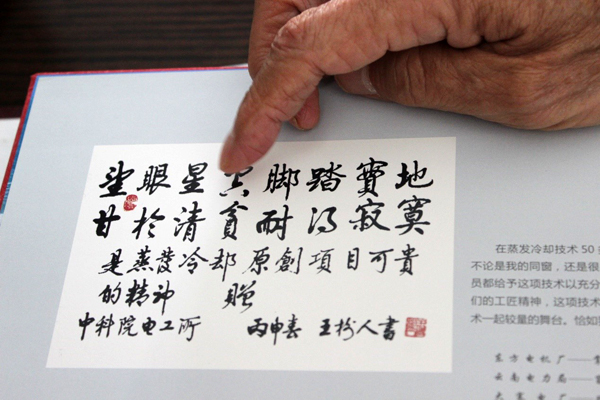 望眼星空脚踏實地
甘於清貧耐得寂寞
是蒸發冷却原創項目可貴
的精神 贈
中科院电工所 丙申春 王树人書
在蒸发冷却技术 50
不论是我的同窗，还是很
员都给予这项技术以充分
们的工匠精神，这项技术
术一起较量的舞台。恰如
东方电机厂——
云南电力局——
大寨电厂——